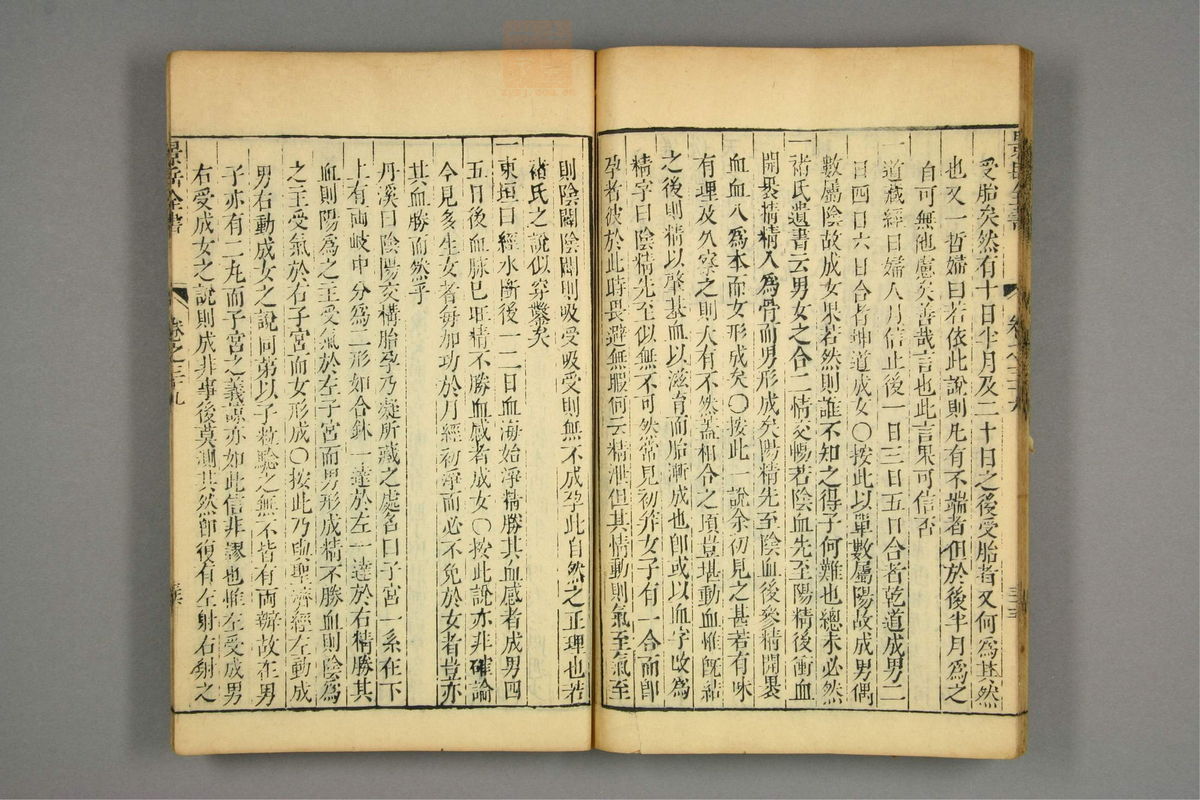 受胎矣然有十日半月及二十日之後受胎者又何爲其然
也又一哲婦曰若依此說則凡有不端者但於後半月爲之
自可無他慮矣善哉言也此言果可信否
一道藏經曰婦人月信止後一日三日五日合者乾道成男二
日四日六日合者坤道成女〇按此以單數屬陽故成男偶
數屬陰故成女果若然則誰不知之得子何難也總未必然
一褚氏遺書云男女之合二情交暢若陰血先至陽精後衝血
開裹精精入爲骨而男形成矣陽精先至陰血後參精開裹
血血入爲本而女形成矣〇按此一說余初見之甚若有味
有理及久察之則大有不然蓋相合之頃豈堪動血惟旣結
之後則精以肇基血以滋育而胎漸成也卽或以血字改爲
精字曰陰精先至似無不可然常見初笄女子有一合而卽
孕者彼於此時畏避無暇何云精泄但其情動則氣至氣至
則陰闢陰闢則吸受吸受則無不成孕此自然之正理也若
褚氏之說似穿鑿矣
一東垣曰經水斷後一二日血海始淨精勝其血感者成男四
五日後血脉已旺精不勝血感者成女〇按此說亦非確論
今見多生女者每加功於月經初淨而必不免於女者豈亦
其血勝而然乎
丹溪曰陰陽交媾胎孕乃凝所藏之處名曰子宮一系在下
上有兩岐中分爲二形如合鉢一達於左一達於右精勝其
血則陽爲之主受氣於左子宮而男形成精不勝血則陰爲
之主受氣於右子宮而女形成〇按此乃與聖濟經左動成
男右動成女之說同第以子粒驗之無不皆有兩瓣故在男
子亦有二丸而子宮之義諒亦如此信非謬也惟左受成男
右受成女之說則成非事後莫測其然卽復有左射右射之
景岳全書
卷之三十九